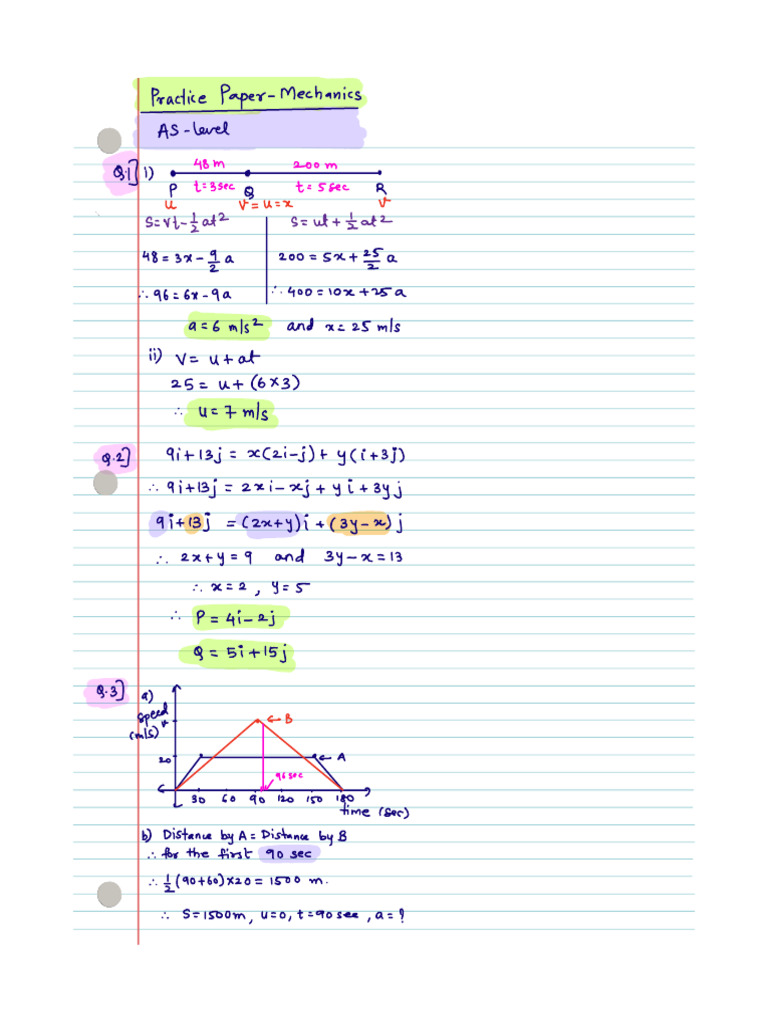 Practice Paper-Mechanics
AS-level
Q.1] i) 48 m 200 m
t=3sec t=5sec
P Q R
u v=u=x v
S=Vt-½at² S=ut+½at²
48=3x-9/2 a 200=5x+25/2 a
∴96=6x-9a ∴400=10x+25a
a=6 m/s² and x=25 m/s
ii) V= u+at
25= u+(6x3)
∴ u=7 m/s
Q.2] 9i+13j = x(2i-j)+ y(i+3j)
∴ 9i+13j = 2xi-xj+yi+3yj
9i+13j =(2x+y)i+(3y-x)j
∴ 2x+y=9 and 3y-x=13
∴ x=2, y=5
∴ P= 4i-2j
Q= 5i+15j
Q.3] a)
speed
(m/s)
v
B
20
A
96sec
30 60 90 120 150 180
time (sec)
b) Distance by A= Distance by B
∴ for the first 90 sec
∴ ½(90+60)x20=1500 m.
∴ S=1500m, u=0, t=90sec, a=?